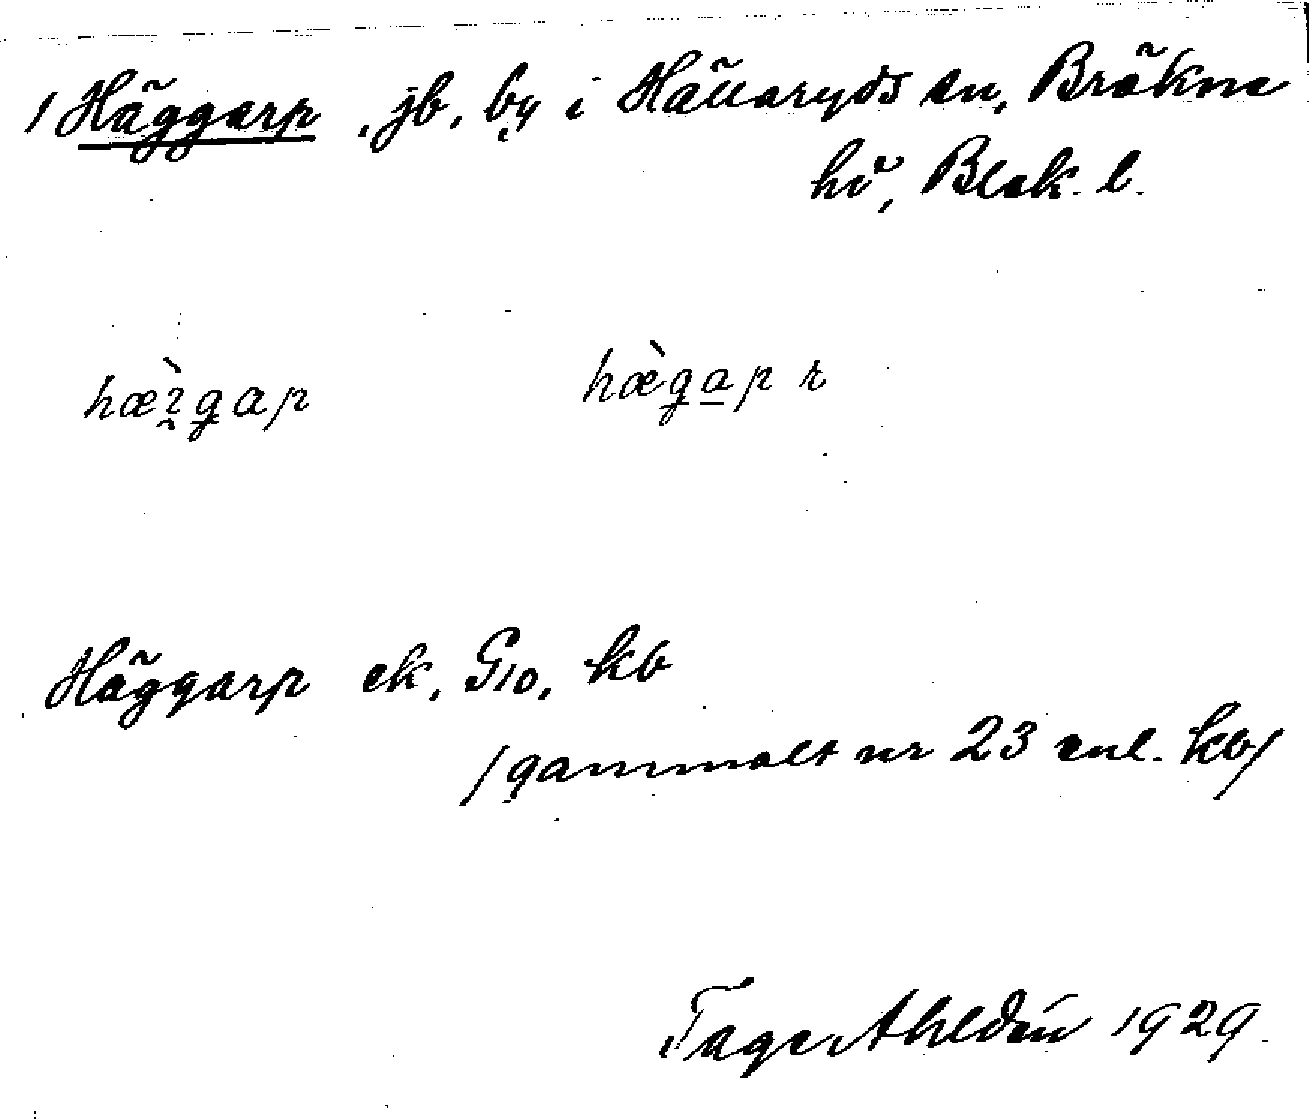 / Häggarp, jb, by i Hällaryds sn, Bräkne
hd, Blek. l.
hæ̀ꝛgap hæ̀gap r
Häggarp ek, G10, kb
/gammalt nr 23 enl. kb/
Tage Ahldén 1929.